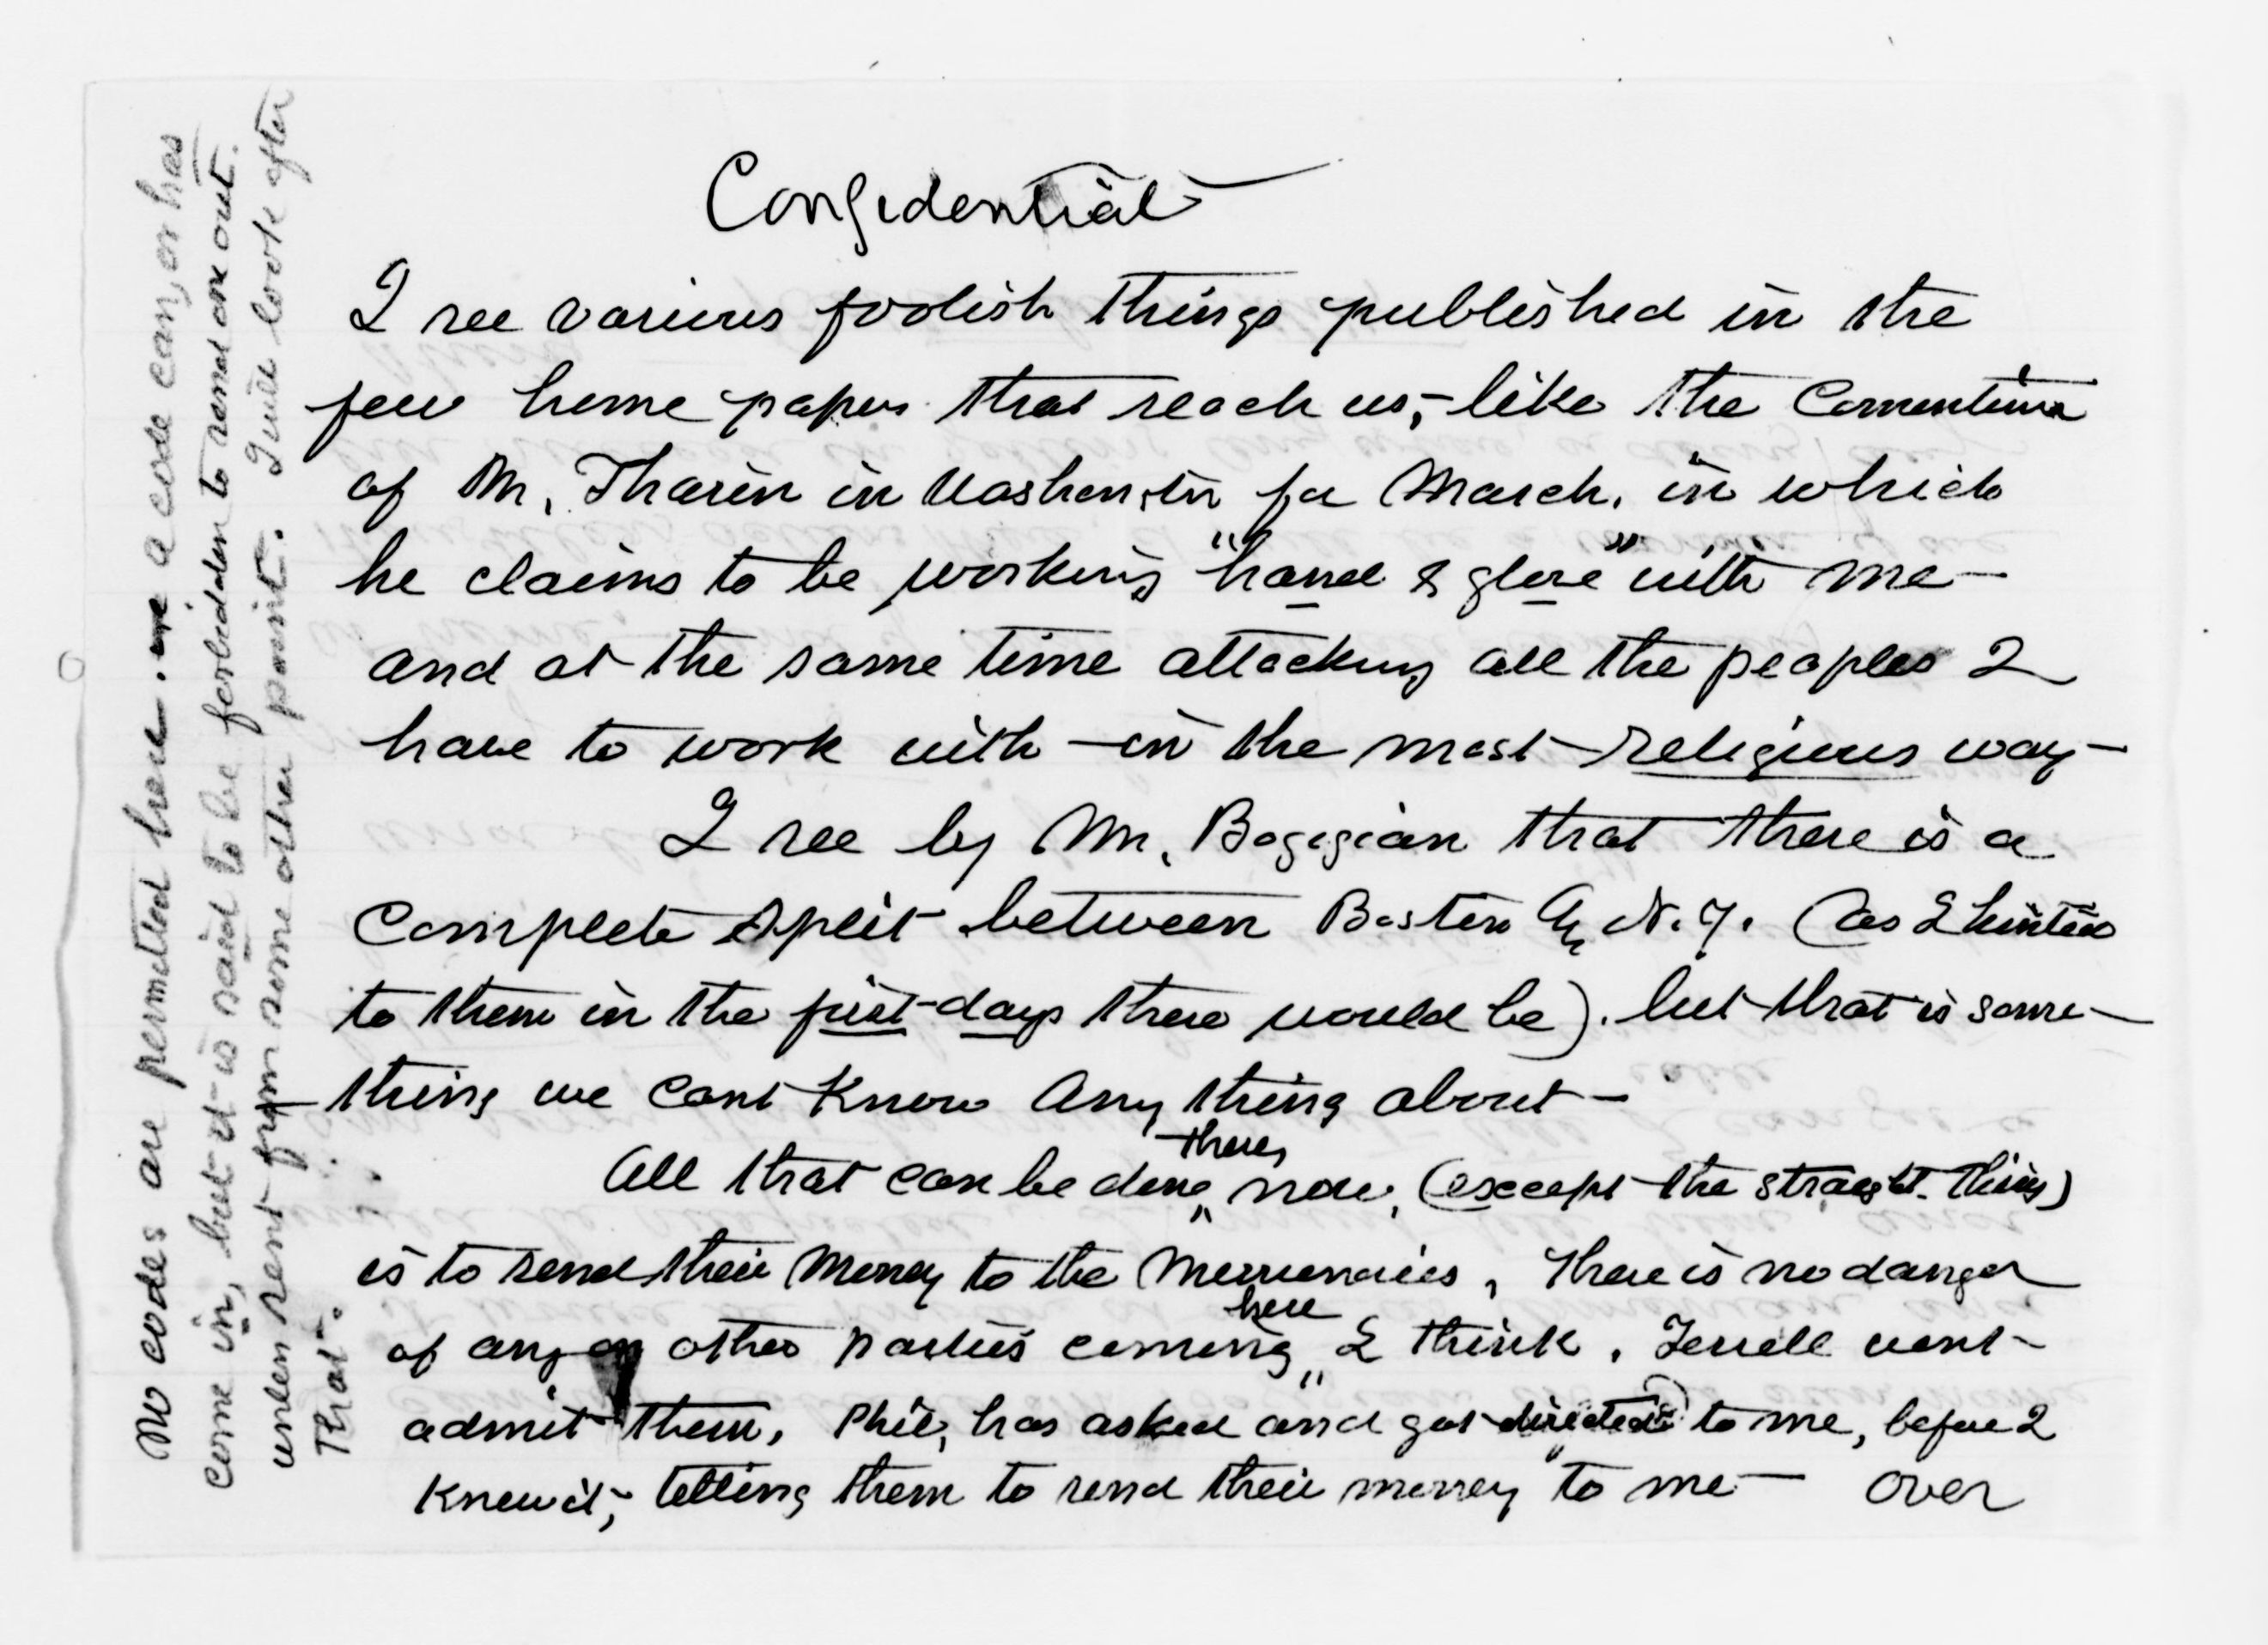 Confidential
I see various foolish things published in the
few home papers that reach us, - like the
of Mr. Tharin in for March. in which
he claims to be working "hand & glove" with me -
and at the same time attacking all the peoples I
have to work with - in the most religious way -
I see by Mr. Bogigian that there is a
Complete split between Boston & N.Y. (as I hinted
to them in the first days there would be). but that is some-
thing we cant Know Any thing about -
there,
All that can be done now, (except the straight thing)
is to send their Money to the Missionaries, There is no danger
here
of any other parties coming I think. Terrell wont
admit them. Phil, has asked and got directed to me, before I
knew it, - telling them to send their money to me - over
No codes are permitted here. a code can, or has
come in, but it is said to be forbidden to send one out.
unless sent from some other point. I will look after
That.